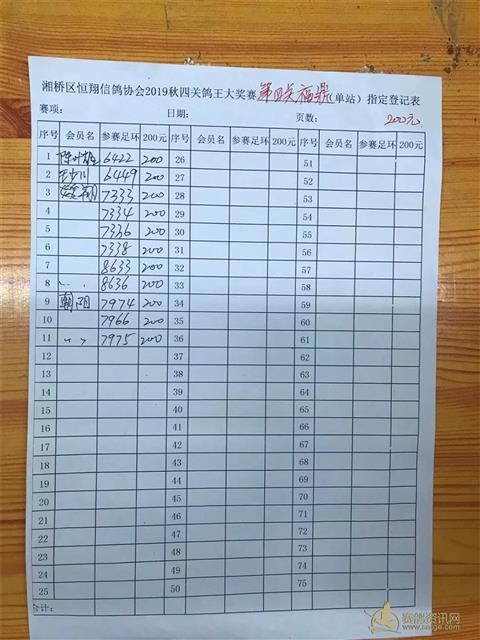 湘桥区恒翔信鸽协会2019秋四关鸽王大奖赛 第四关福鼎(单站)指定登记表
赛项: 日期: 页数: 200元
序号 会员名 参赛足环 200元 序号 会员名 参赛足环 200元 序号 会员名 参赛足环 200元
1 6422 200 26 51
2 6449 200 27 52
3 7333 200 28 53
4 7334 200 29 54
5 7336 200 30 55
6 7338 200 31 56
7 8633 200 32 57
8 〃 8636 200 33 58
9 朝阳 7974 200 34 59
10 7966 200 35 60
11 〃 7975 200 36 61
12 37 62
13 38 63
14 39 64
15 40 65
16 41 66
17 42 67
18 43 68
19 44 69
20 45 70
21 46 71
22 47 72
23 48 73
24 49 74
25 50 75
合计:
赛鸽资讯网
www.saige.com